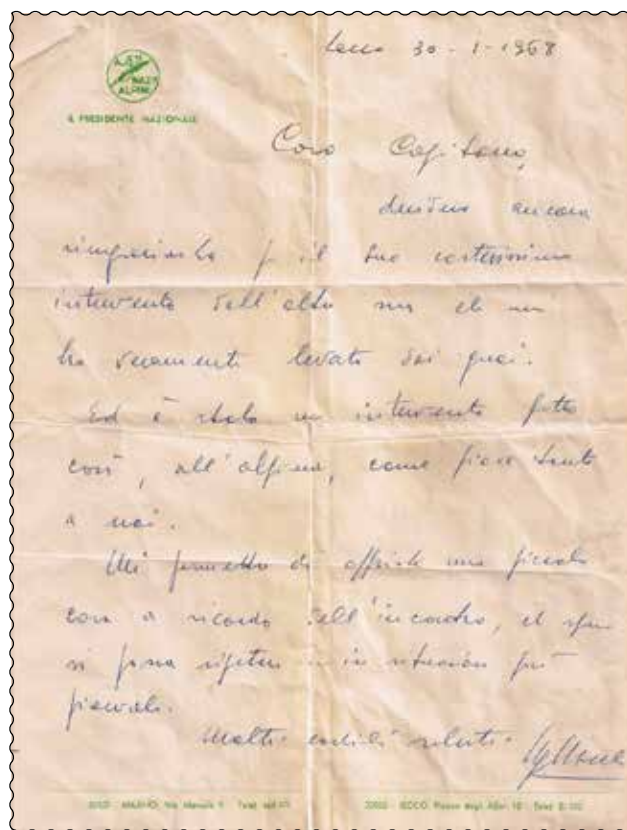 ASS. NAZ. ALPINI
IL PRESIDENTE NAZIONALE
Lecco 30-1-1968
Caro Capitano,
desidero ancora
ringraziarLa p il Suo cortesissimo
intervento dell'altra sera che mi
ha veramente levato dai guai.
Ed è stato un intervento fatto
così, all'alpina, come piace tanto
a noi.
Mi permetto di offrirLe una piccola
cosa a ricordo dell'incontro, che spero
si possa ripetere in situazioni più
piacevoli.
Molti cordiali saluti
20121 - MILANO, Via Marsala 9 - Telef.
22053 - LECCO, Piazza degli Alpini